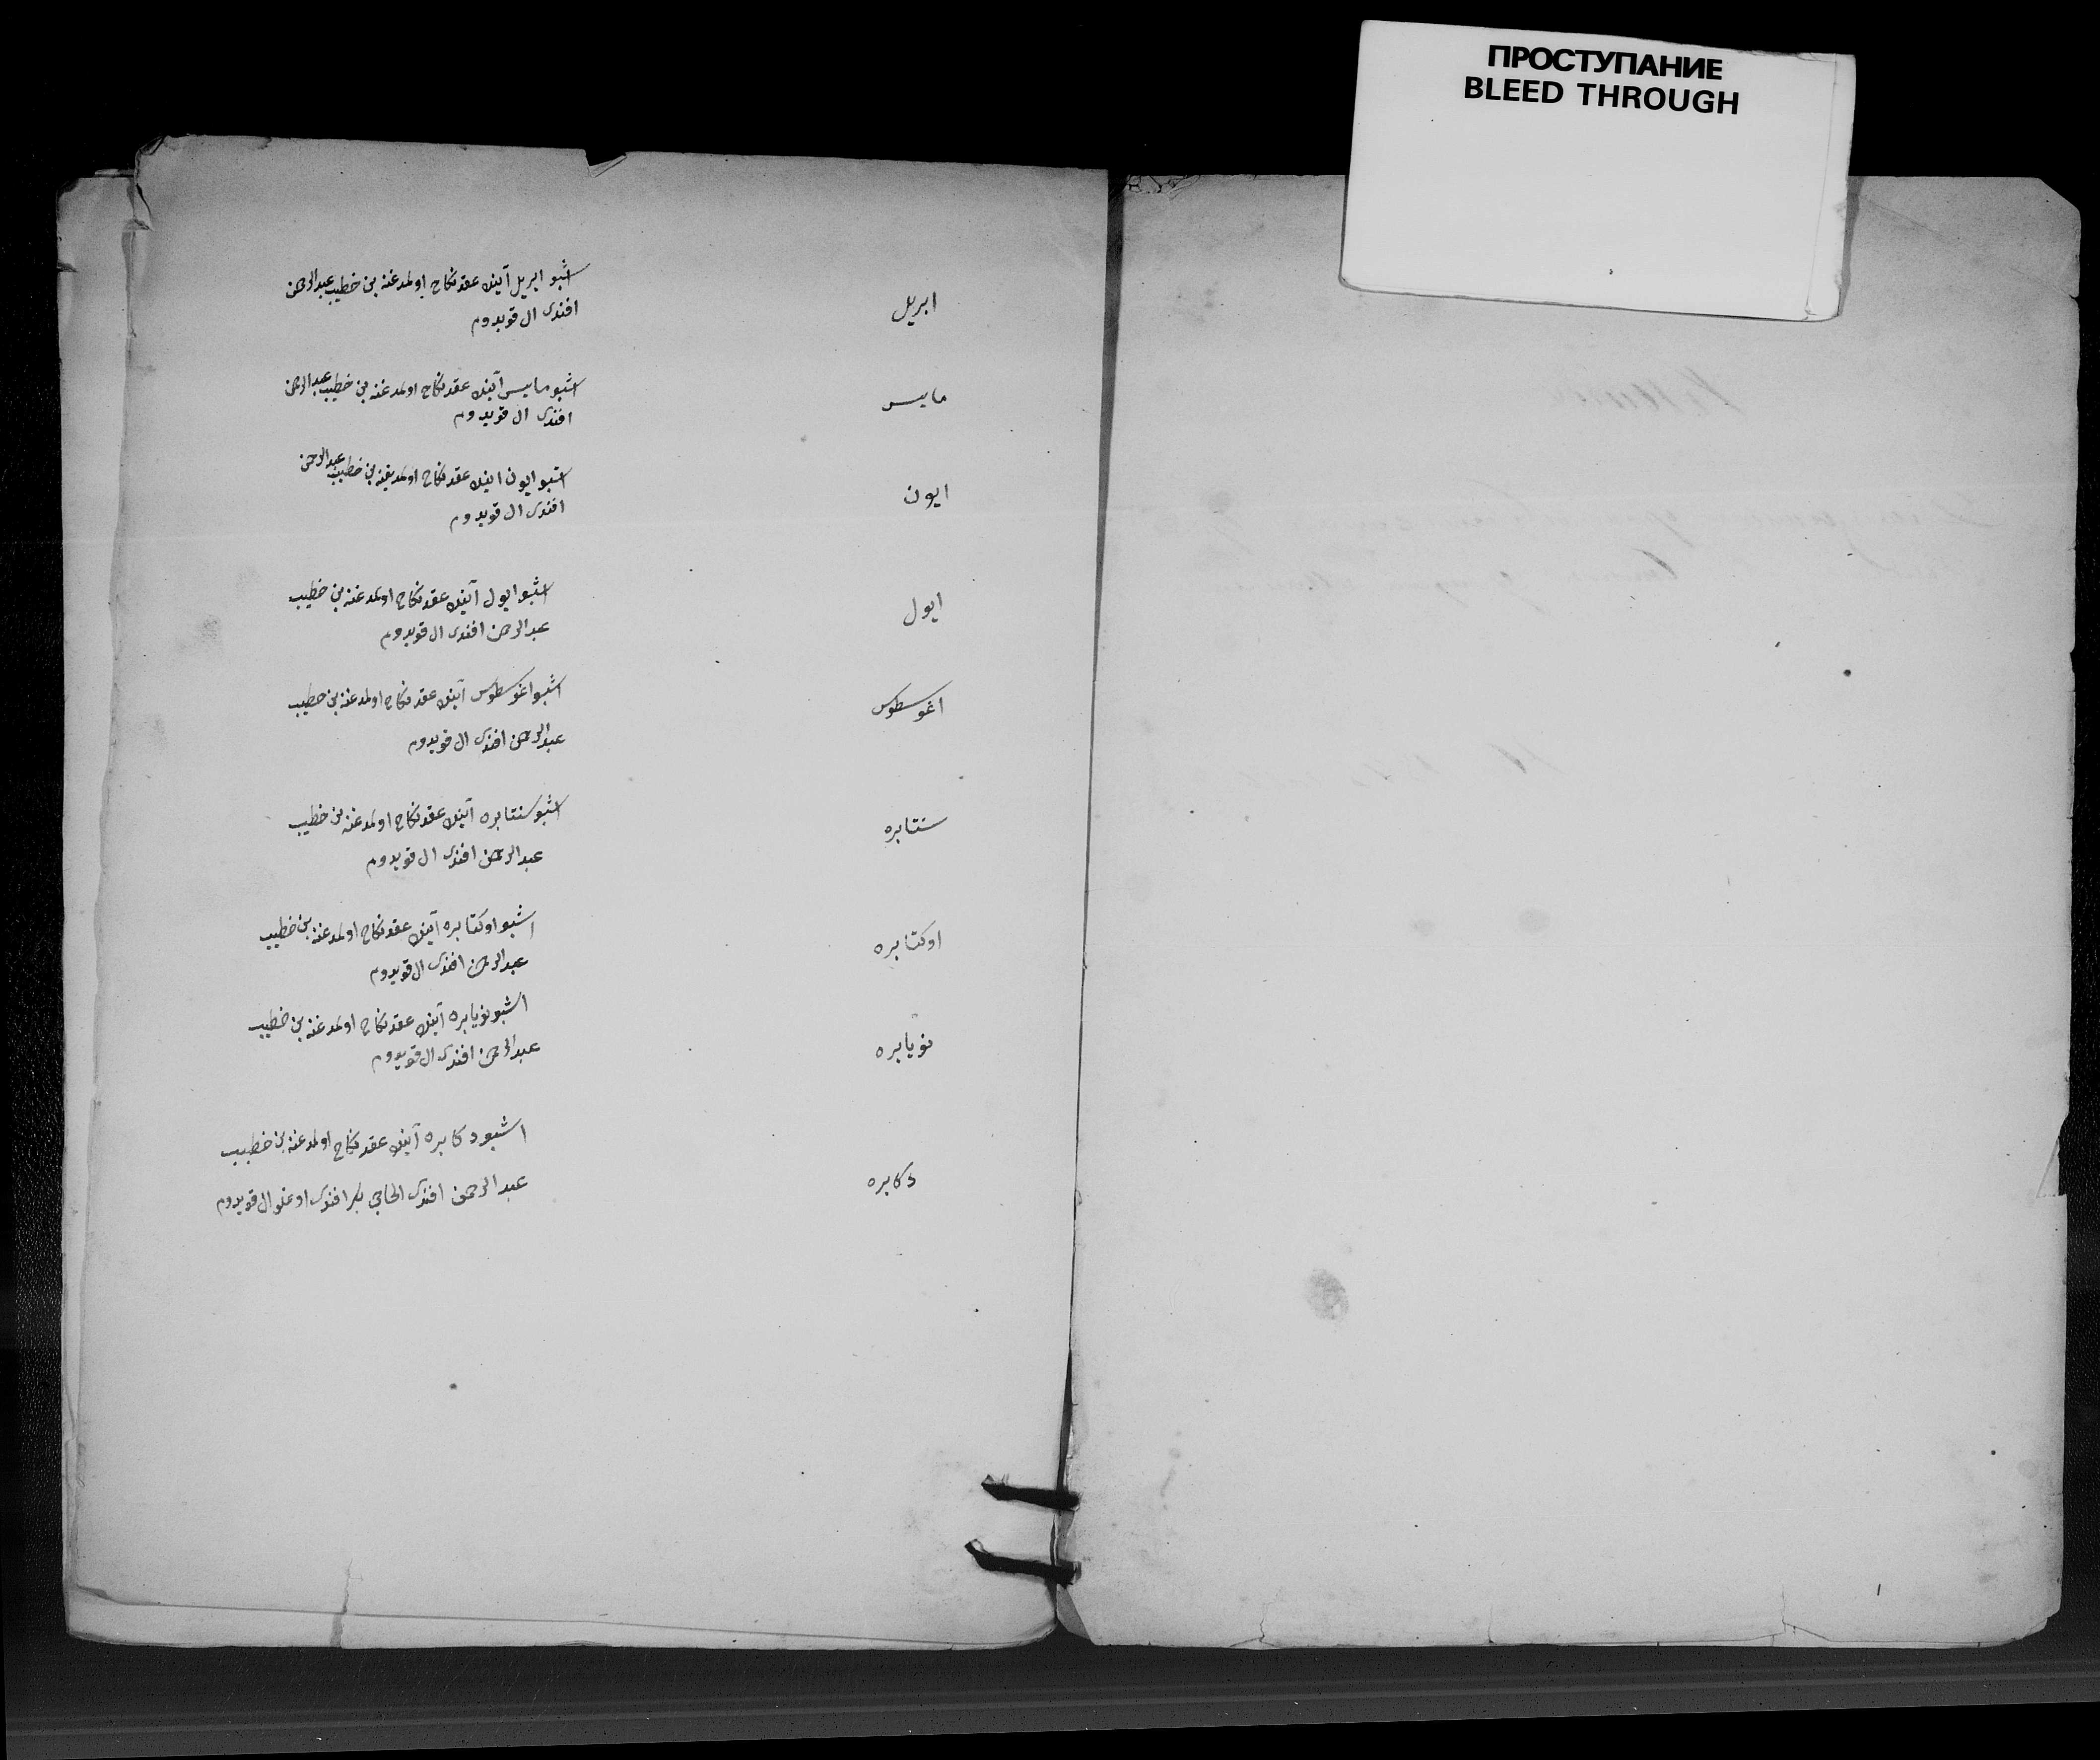 ПРОСТУПАНИЕ
BLEED THROUGH
ابريل
اشبو ابريل آينده عقد نكاح اولمدغنه بن خطيب عبدالرحمن
افندى ال قويدوم
مايس
اشبو مايس آينده عقد نكاح اولمدغنه بن خطيب عبدالرحمن
افندى ال قويدوم
ايون
اشبو ايون اينده عقد نكاح اولمديغنه بن خطيب عبدالرحمن
افندى ال قويدوم
ايول
اشبو ايول آينده عقد نكاح اولمدغنه بن خطيب
عبدالرحمن افندى ال قويدوم
اغوسطوس
اشبو اغوسطوس آينده عقد نكاح اولمدغنه بن خطيب
عبدالرحمن افندى ال قويدوم
سنتابره
اشبو سنتابره آينده عقد نكاح اولمدغنه بن خطيب
عبدالرحمن افندى ال قويدوم
اوكتابره
اشبو اوكتابره آينده عقد نكاح اولمدغنه بن خطيب
عبدالرحمن افندى ال قويدوم
نويابره
اشبو نويابره آينده عقد نكاح اولمدغنه بن خطيب
عبدالرحمن افندى ال قويدوم
دكابره
اشبو دكابره آينده عقد نكاح اولمدغنه بن خطيب
عبدالرحمن افندى الحاجى بكر افندى اوغلو ال قويدوم